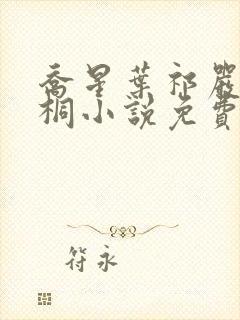 喬星葉祁嚴
桐小說免費
符永